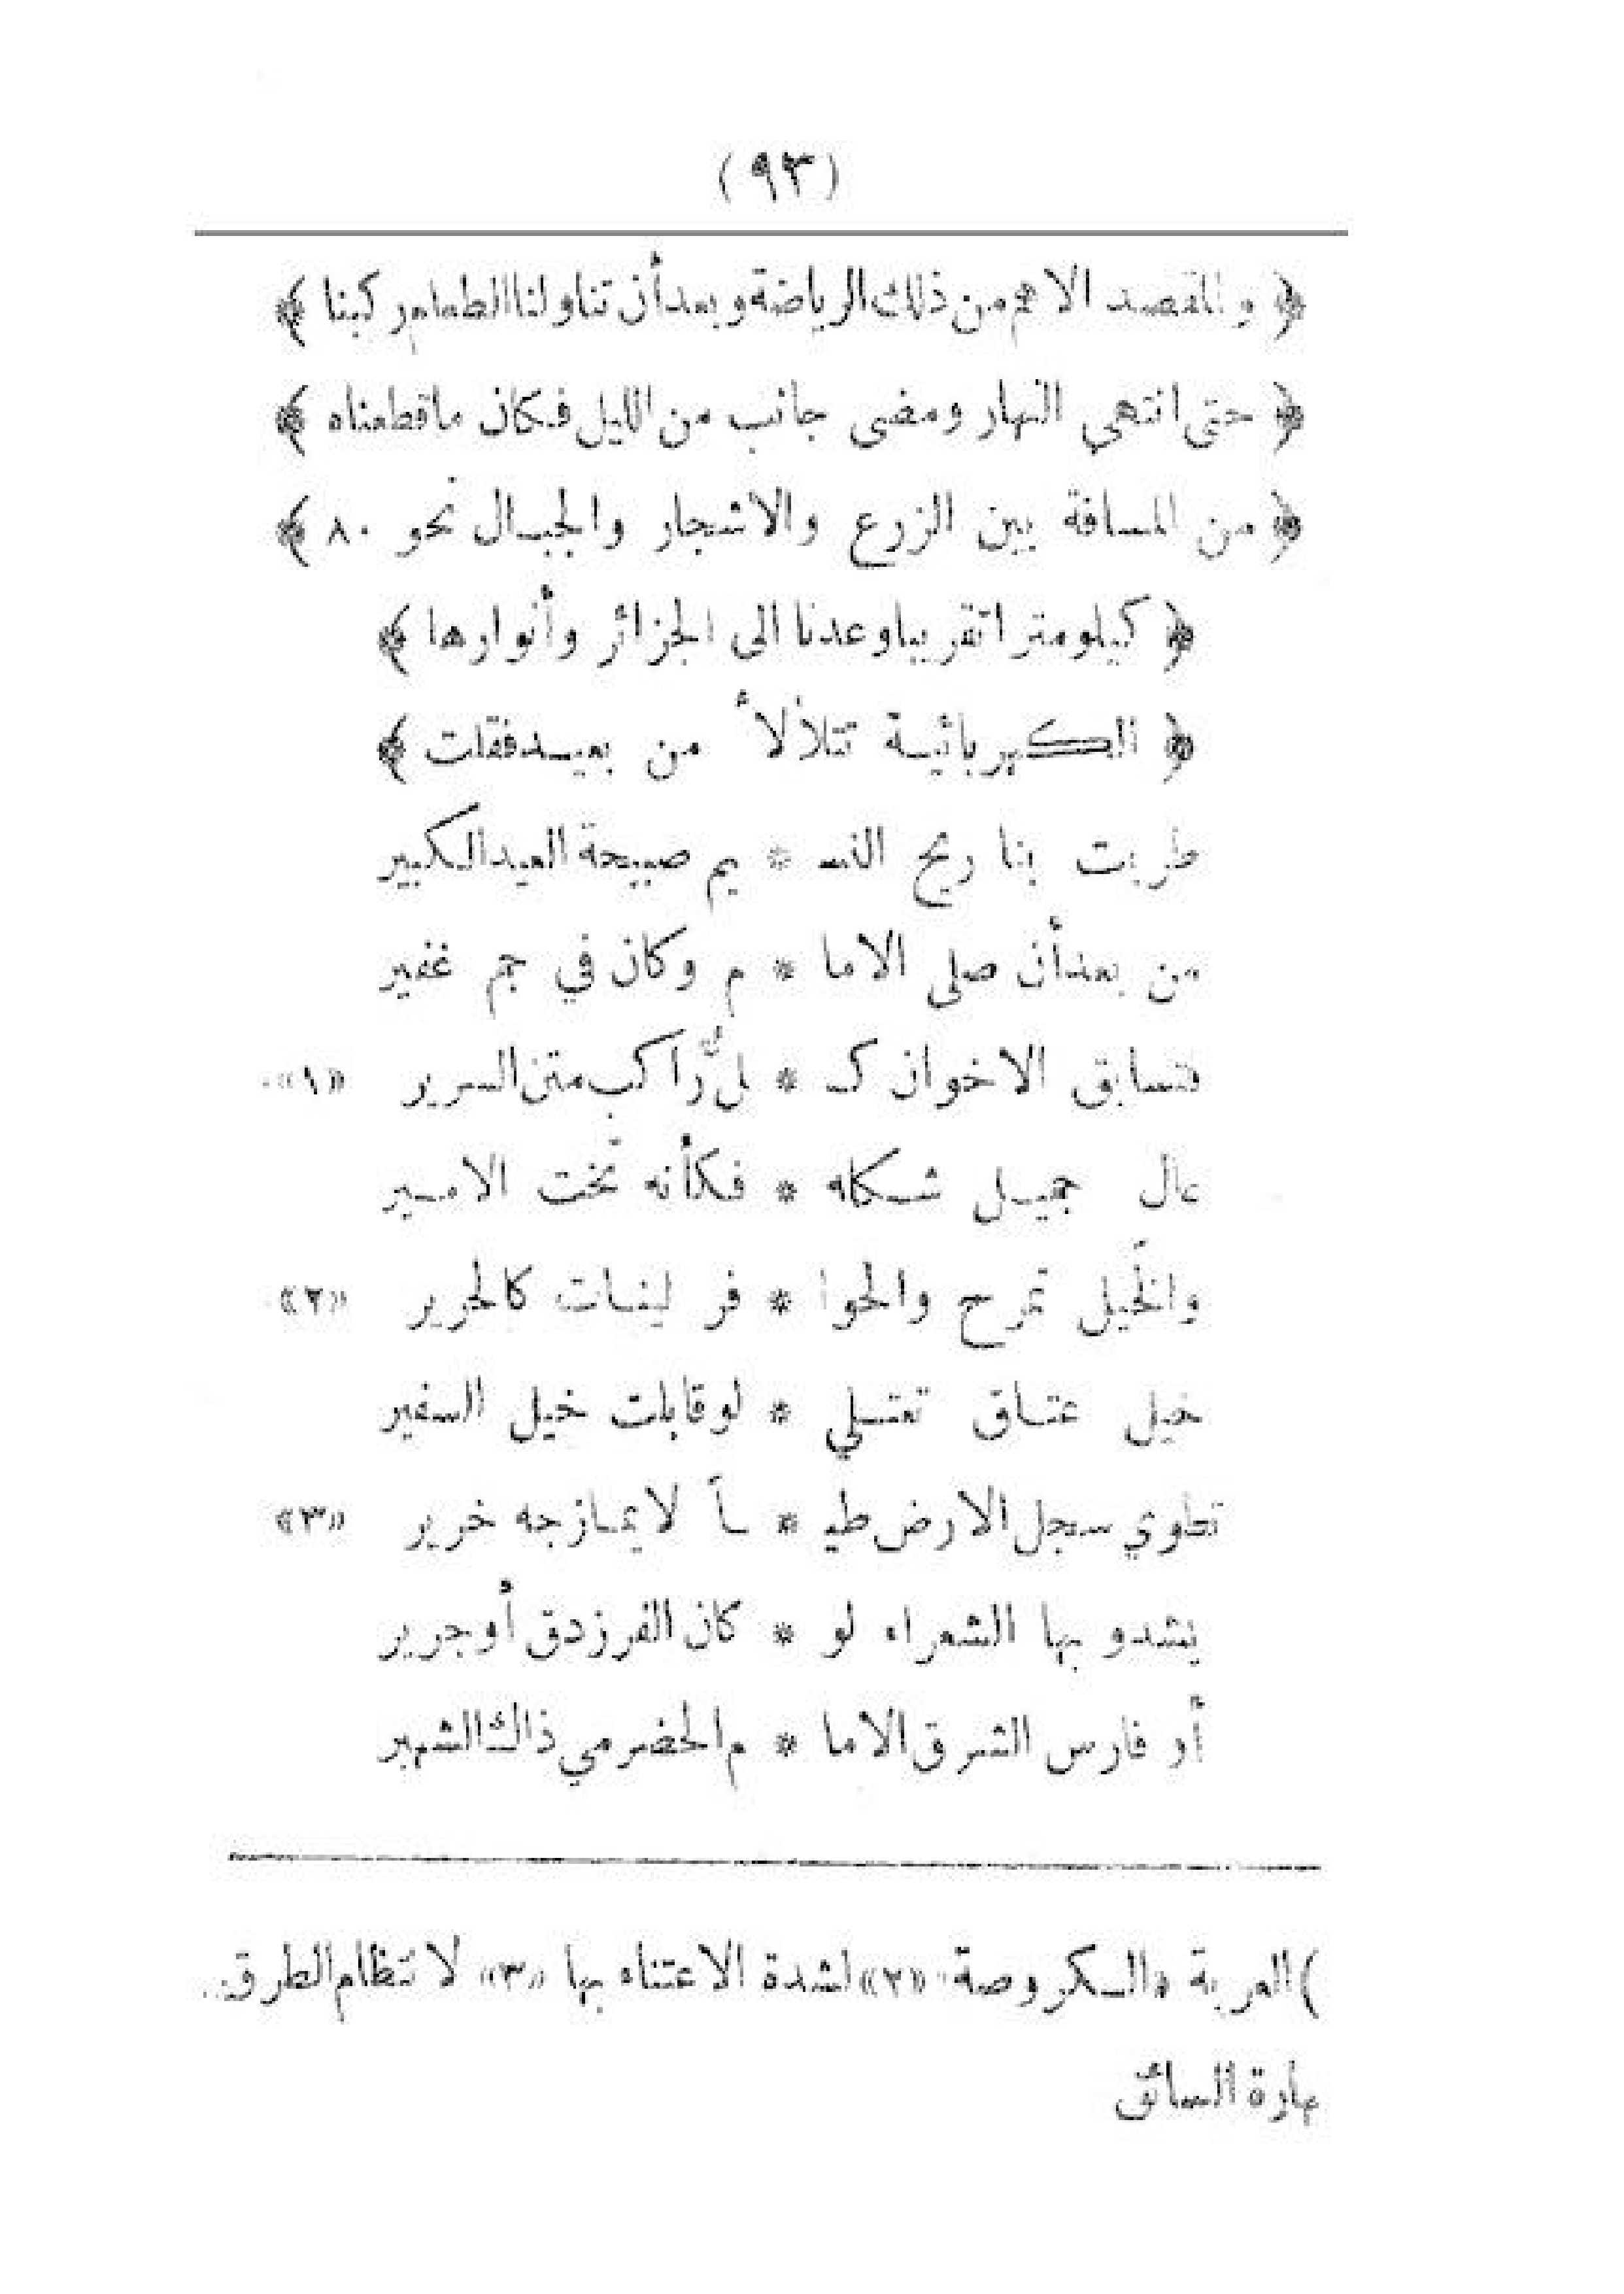 (٩٣)
﴿ والمقصد الاهم من ذلك الرياضة وبعد أن تناولنا الطعام ركبنا ﴾
﴿ حتى انتهى النهار ومضى جانب من الليل فكان ما قطعناه ﴾
﴿ من المسافة بين الزرع والاشجار والجبال نحو ٨٠ ﴾
﴿ كيلومترا تقريبا وعدنا الى الجزائر وأنوارها ﴾
﴿ الكهربائية تتلألأ من بعيد فقلت ﴾
طربت بنا ريح النسـ * يم صبيحة العيد الكبير
من بعد أن صلى الاما * م وكان في جم غفير
فتسابق الاخوان كـ * لٌّ راكب متن السرير «١»
عال جميل شكله * فكأنه تخت الامير
والخيل تمرح والحوا * فر لينات كالحرير «٢»
خيل عتاق تعتلي * لو قابلت خيل السفير
تطوي سجل الارض طيـ * ـاً لا يمازجه خرير «٣»
يشدو بها الشعراء لو * كان الفرزدق أو جرير
أو فارس الشرق الاما * م الحضرمي ذاك الشهير
) العربة «الكروصة» «٢» لشدة الاعتناء بها «٣» لانتظام الطرق
هارة السائق